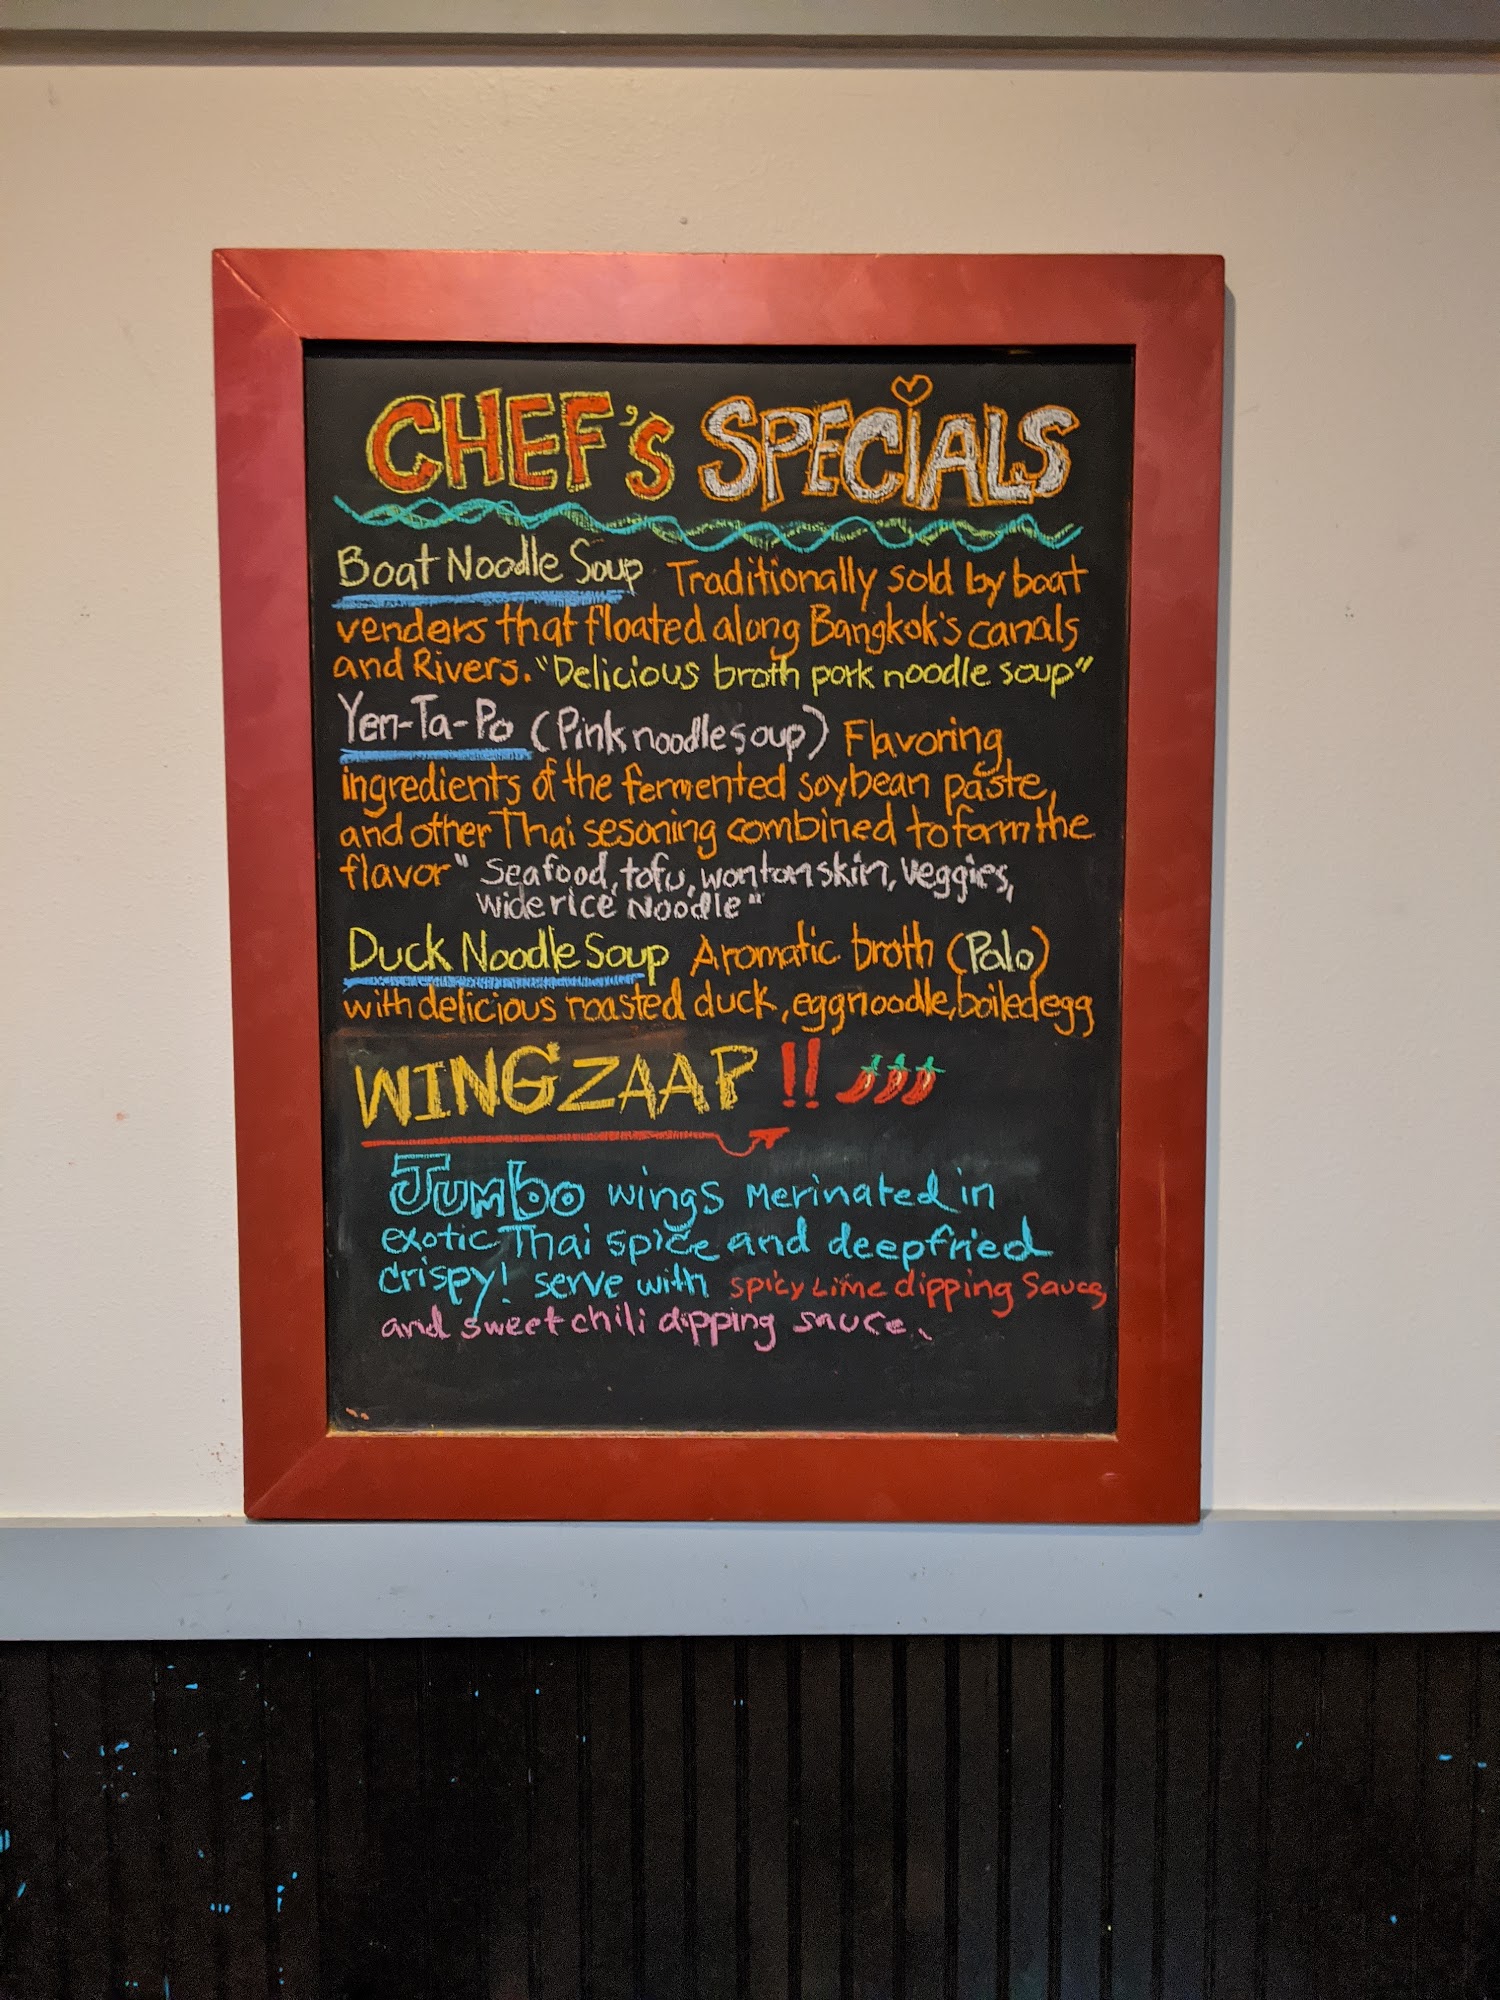 CHEF's SPECiALS
Boat Noodle Soup Traditionally sold by boat
venders that floated along Bangkok's canals
and Rivers. "Delicious broth pork noodle soup"
Yen-Ta-Po (Pink noodle soup) Flavoring
ingredients of the fermented soybean paste,
and other Thai sesoning combined to form the
flavor" Seafood, tofu, wonton skin, veggies,
wide rice Noodle"
Duck Noodle Soup Aromatic broth (Palo)
with delicious roasted duck, egg noodle, boiled egg
WINGZAAP !!
Jumbo wings merinated in
exotic Thai spice and deepfried
crispy! serve with spicy Lime dipping sauce,
and sweet chili dipping sauce.